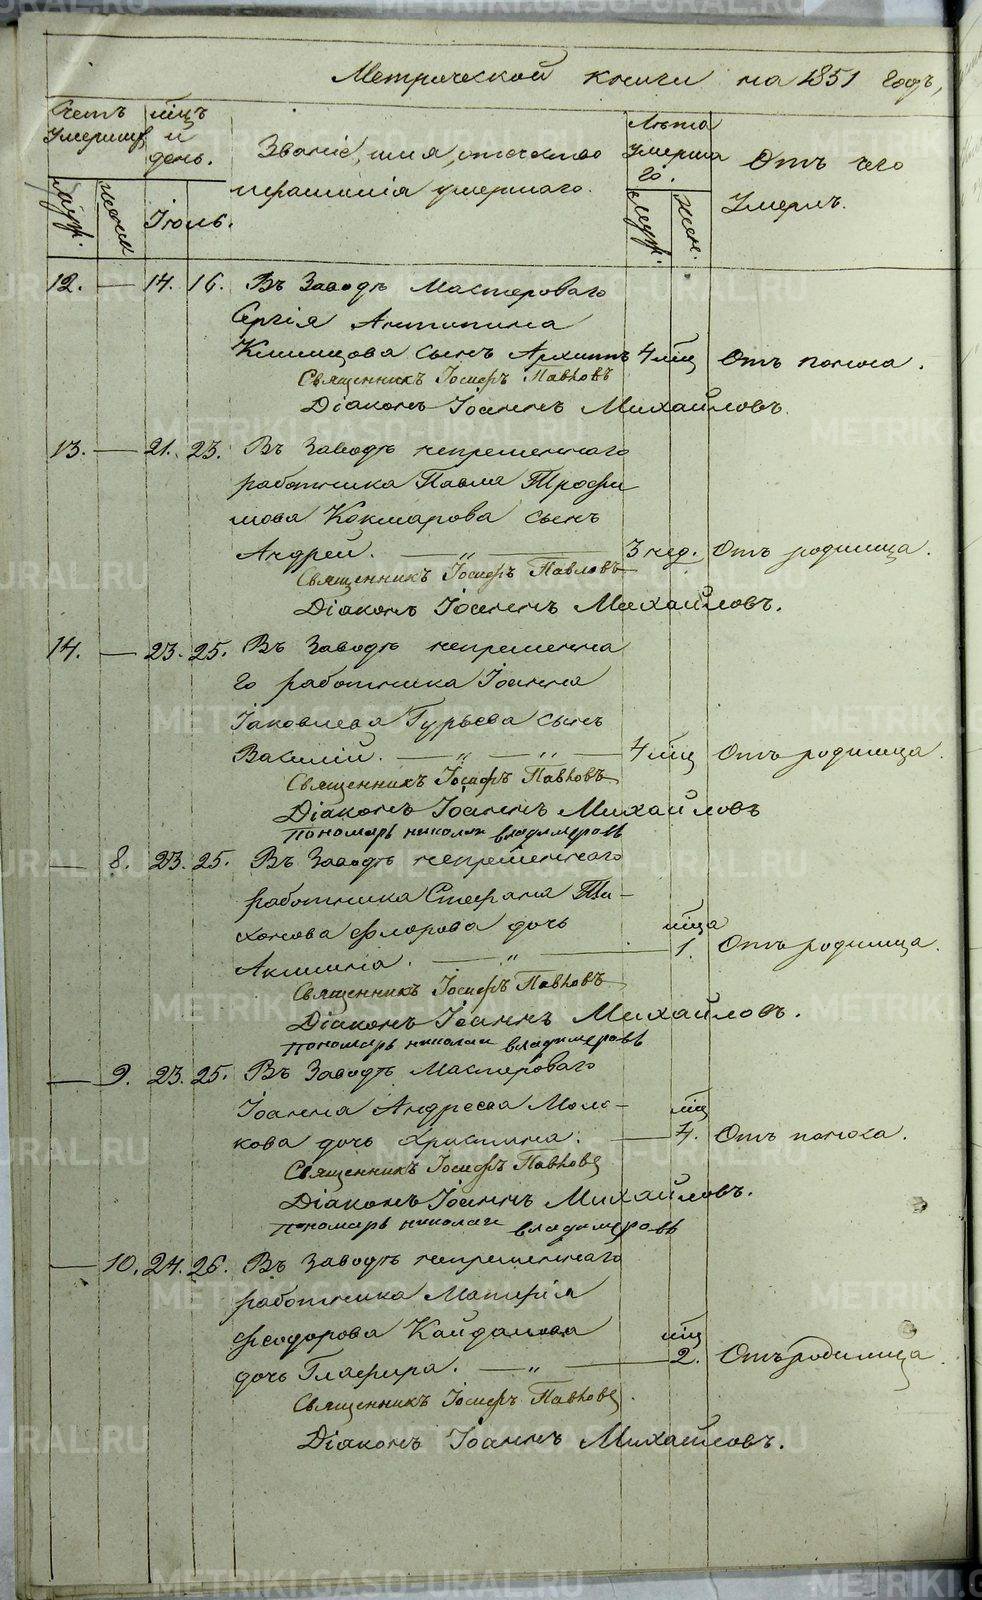 Метрической книги на 1851 годъ,
Счетъ умершихъ
мѣцъ и день.
Званіе, имя, отчество и фамилія умершаго.
Лѣта умершаго.
Отъ чего умеръ.
муж. женск Іюль. муж. жен.
12. — 14. 16. Въ Заводѣ Мастероваго
Сергія Антипина
Климцова сынъ Архиппъ 4 мѣц Отъ поноса.
Священникъ Іосифъ Павловъ
Діаконъ Іоаннъ Михайловъ.
13. — 21. 23. Въ Заводѣ непременнаго
работника Павла Трофи
мова Кокшарова сынъ
Андрей. — „ — 3 нед. Отъ родимца.
Священникъ Іосифъ Павловъ
Діаконъ Іоаннъ Михайловъ.
14. — 23. 25. Въ Заводѣ непременна
го работника Іоанна
Іаковлева Гурьева сынъ
Василій. — „ — „ — 4 мѣц Отъ родимца.
Священникъ Іосифъ Павловъ
Діаконъ Іоаннъ Михайловъ
Пономарь николаи владимеровъ
— 8. 23. 25. Въ Заводѣ непременнаго
работника Стефана Ти-
хонова Флорова дочь мѣца
Акилина. — „ — 1. Отъ родимца.
Священникъ Іосифъ Павловъ
Діаконъ Іоаннъ Михайловъ.
Пономарь николаи владимеровъ
— 9. 23. 25. Въ Заводѣ Мастероваго
Іоанна Андреева Моло- мѣц
кова дочь Христина. — 4. Отъ поноса.
Священникъ Іосифъ Павловъ
Діаконъ Іоаннъ Михайловъ.
Пономарь николаи владимеровъ
— 10. 24. 26. Въ Заводѣ непременнаго
работника Матфія
Феодорова Кайдалова мѣц
дочь Глафира. — „ — 2. Отъ родимца.
Священникъ Іосифъ Павловъ.
Діаконъ Іоаннъ Михайловъ.
METRIKI.GASO-URAL.RU